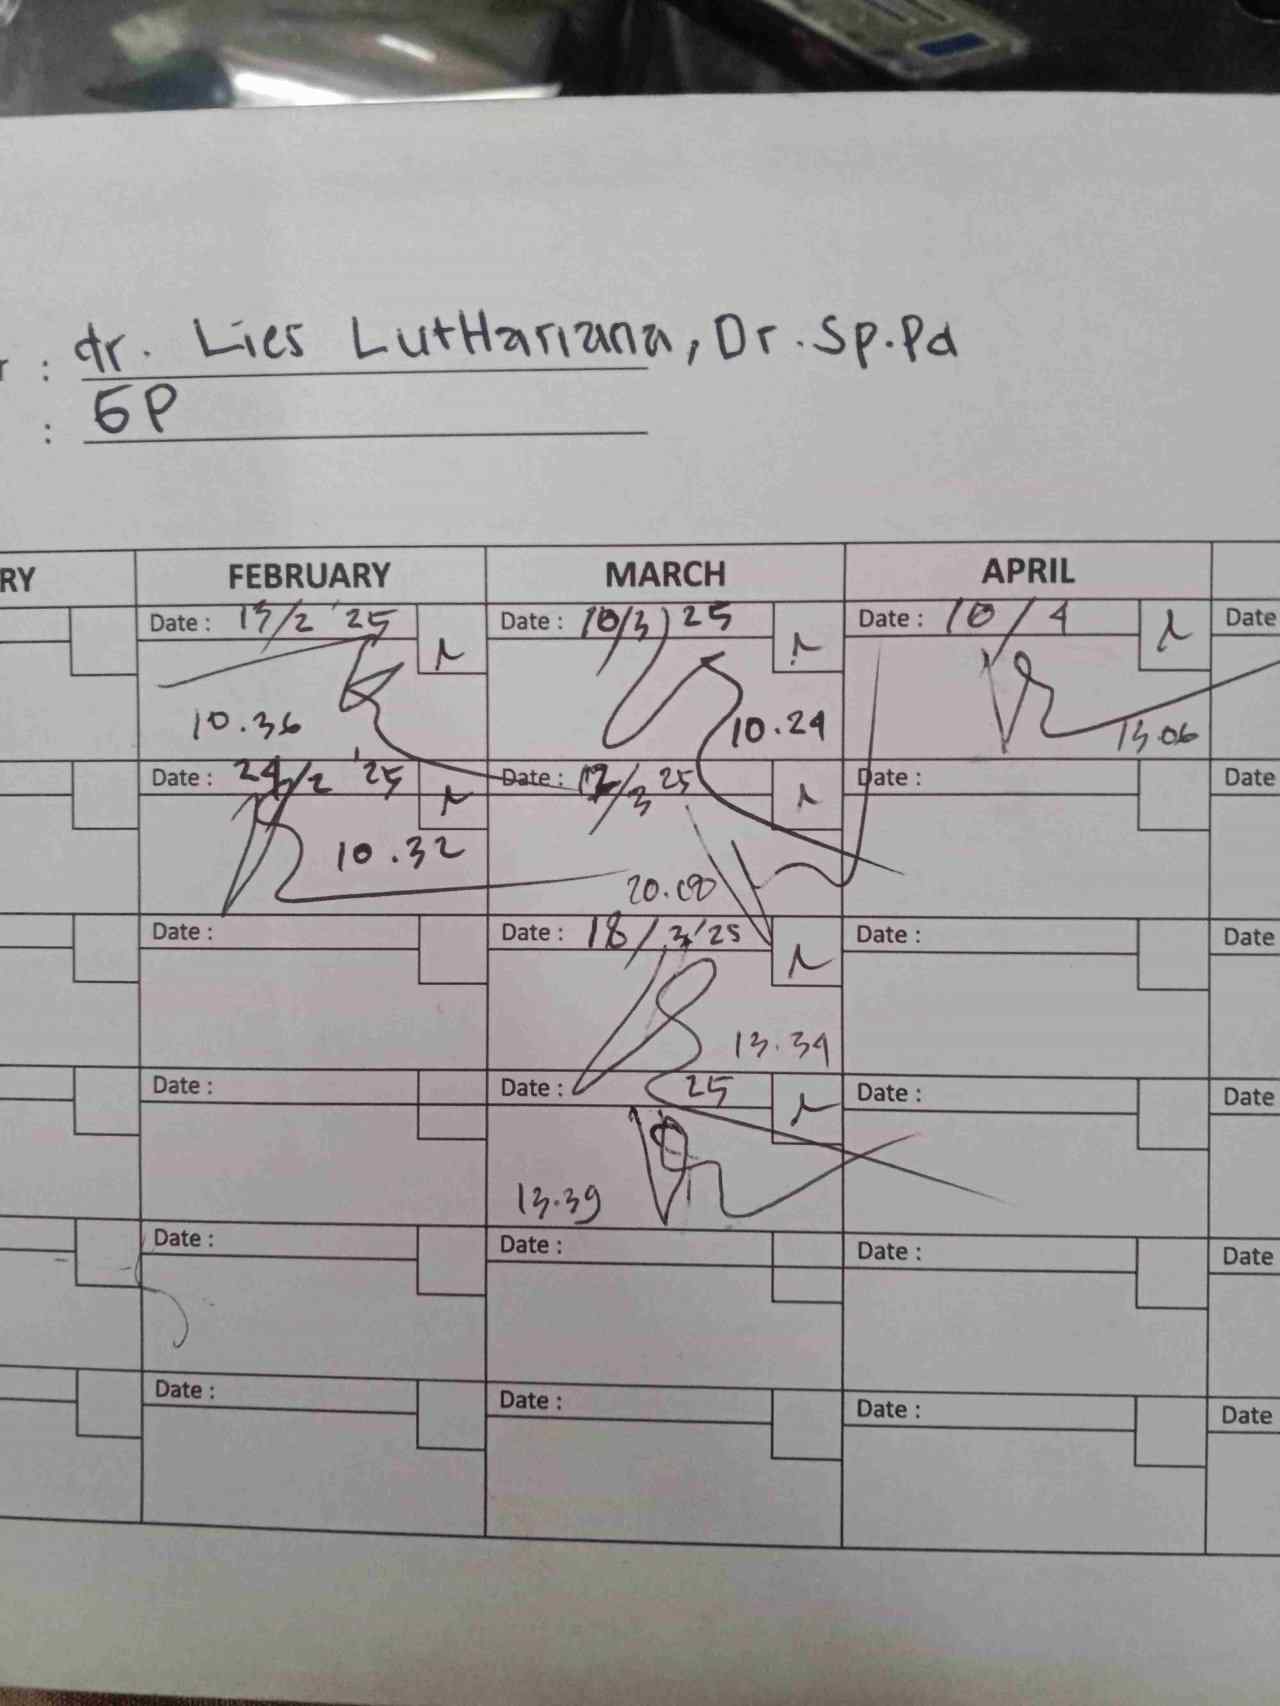 : dr. Lies LutHariana, Dr. Sp.Pd
: GP
RY FEBRUARY MARCH APRIL
Date : 13/2 '25 Date : 10/3 25 Date : 10/4 Date
10.36 10.24 13.06
Date : 24/2 '25 Date : 12/3 25 Date : Date
10.32 20.00
Date : Date : 18/3 '25 Date : Date
13.34
Date : Date : 25 Date : Date
13.39
Date : Date : Date : Date
Date : Date : Date : Date